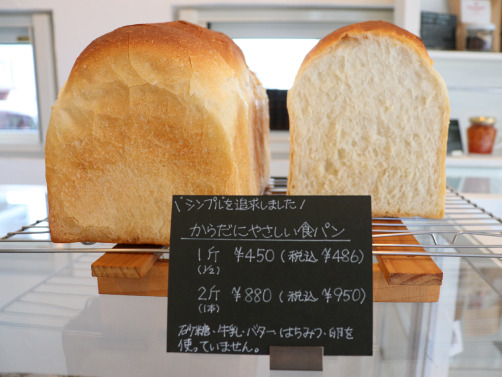 \シンプルを追求しました/
からだにやさしい食パン
1斤 ¥450(税込 ¥486)
(1/2)
2斤 ¥880(税込 ¥950)
(1本)
砂糖・牛乳・バター・はちみつ・卵を
使っていません。